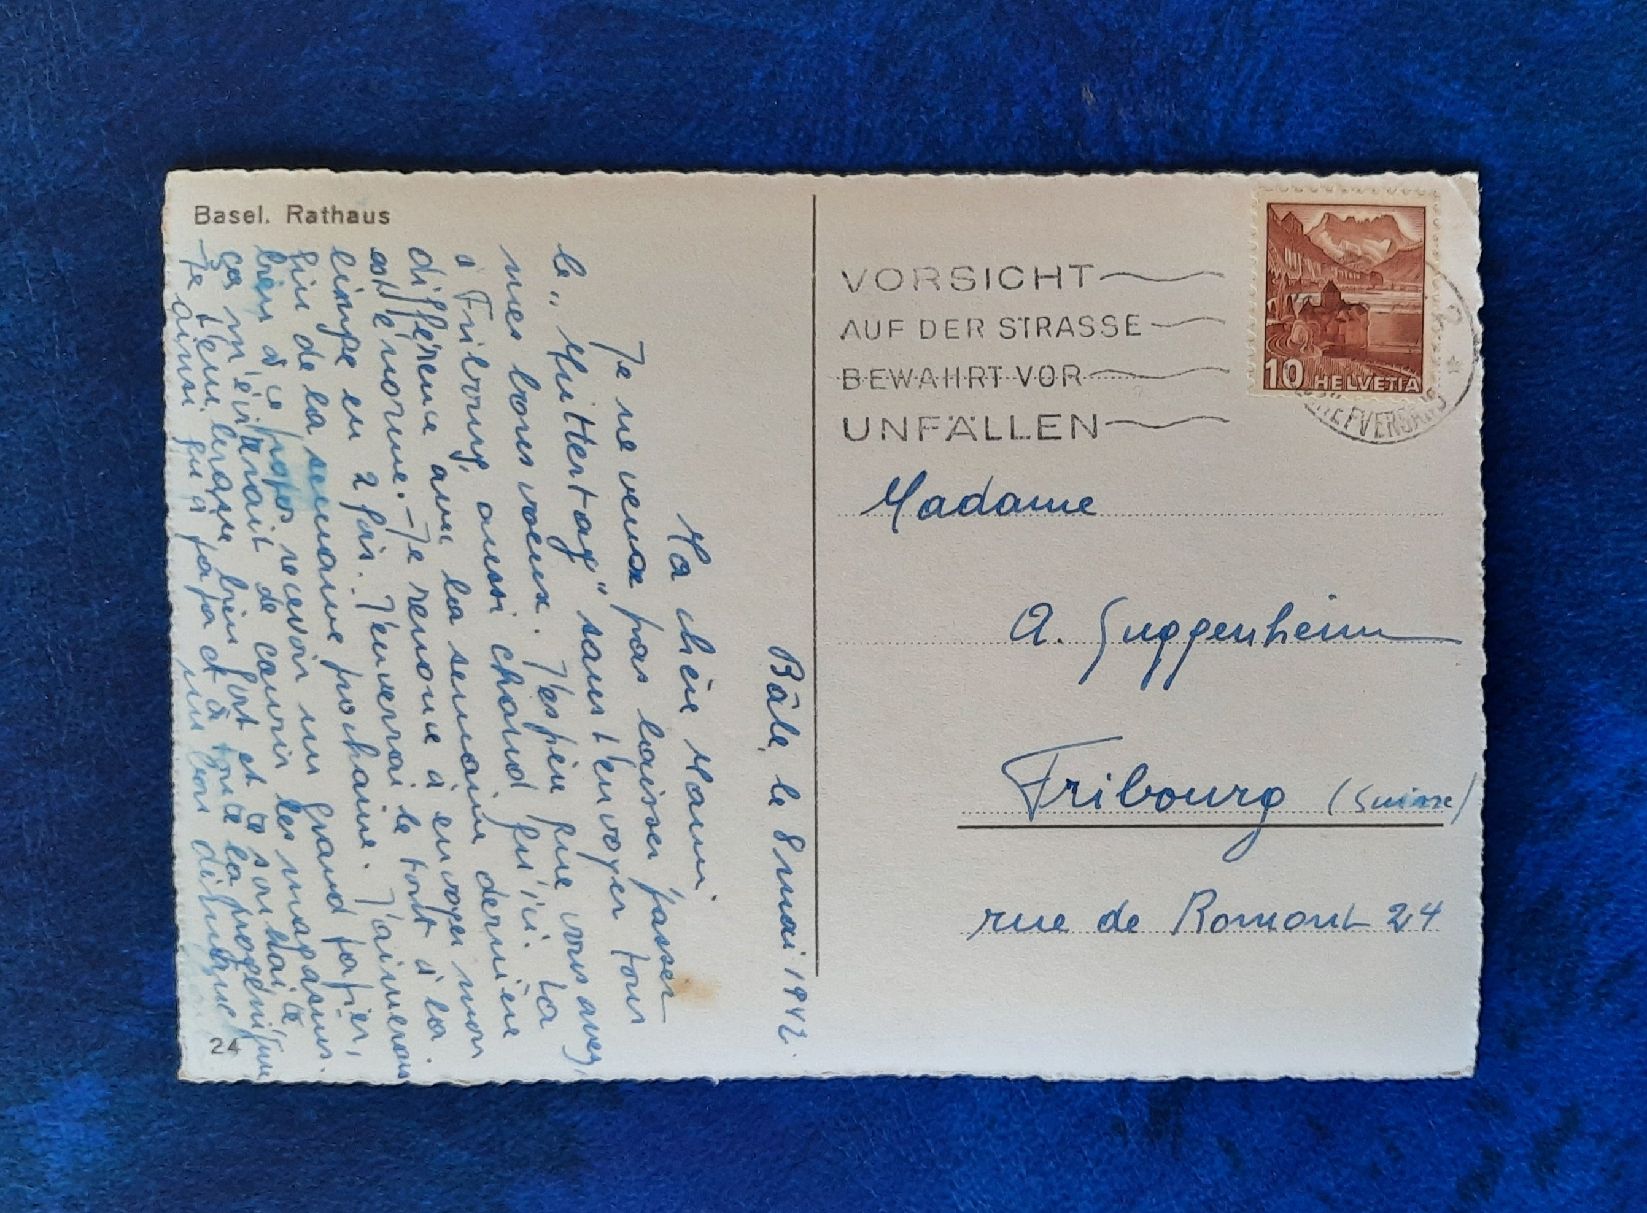 Basel. Rathaus
Bâle, le 8 mai 1942.
Ma chère Mami
Je ne veux pas laisser passer
le „Muttertag" sans t'envoyer tous
mes bons voeux. J'espère que vous avez,
à Fribourg, aussi chaud qu'ici. La
différence avec la semaine dernière
est énorme. - Je renonce à envoyer mon
linge en 2 fois. J'enverrai le tout à la
fin de la semaine prochaine. J'aimerais
bien à ce propos recevoir un grand papier,
ça m'éviterait de courir les magasins.
- Je t'embrasse bien fort et te souhaite
ainsi qu'à papa et à toute la progéniture
un bon dimanche
24
VORSICHT
AUF DER STRASSE
BEWAHRT VOR
UNFÄLLEN
10 HELVETIA
Madame
A. Guggenheim
Fribourg (Suisse)
rue de Romont 24